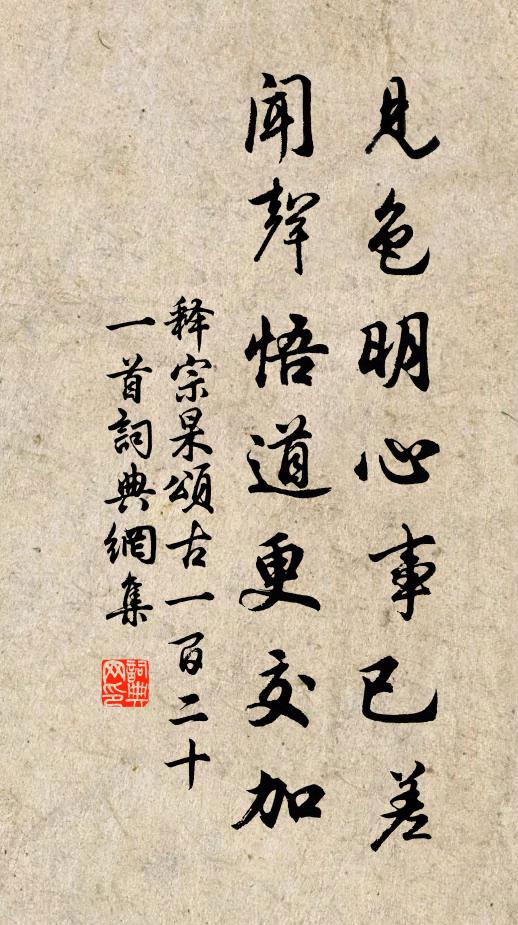 見色明心事已差
聞聲悟道更交加
释宗杲頌古一百二十
一首詞典網集
詞典
网印